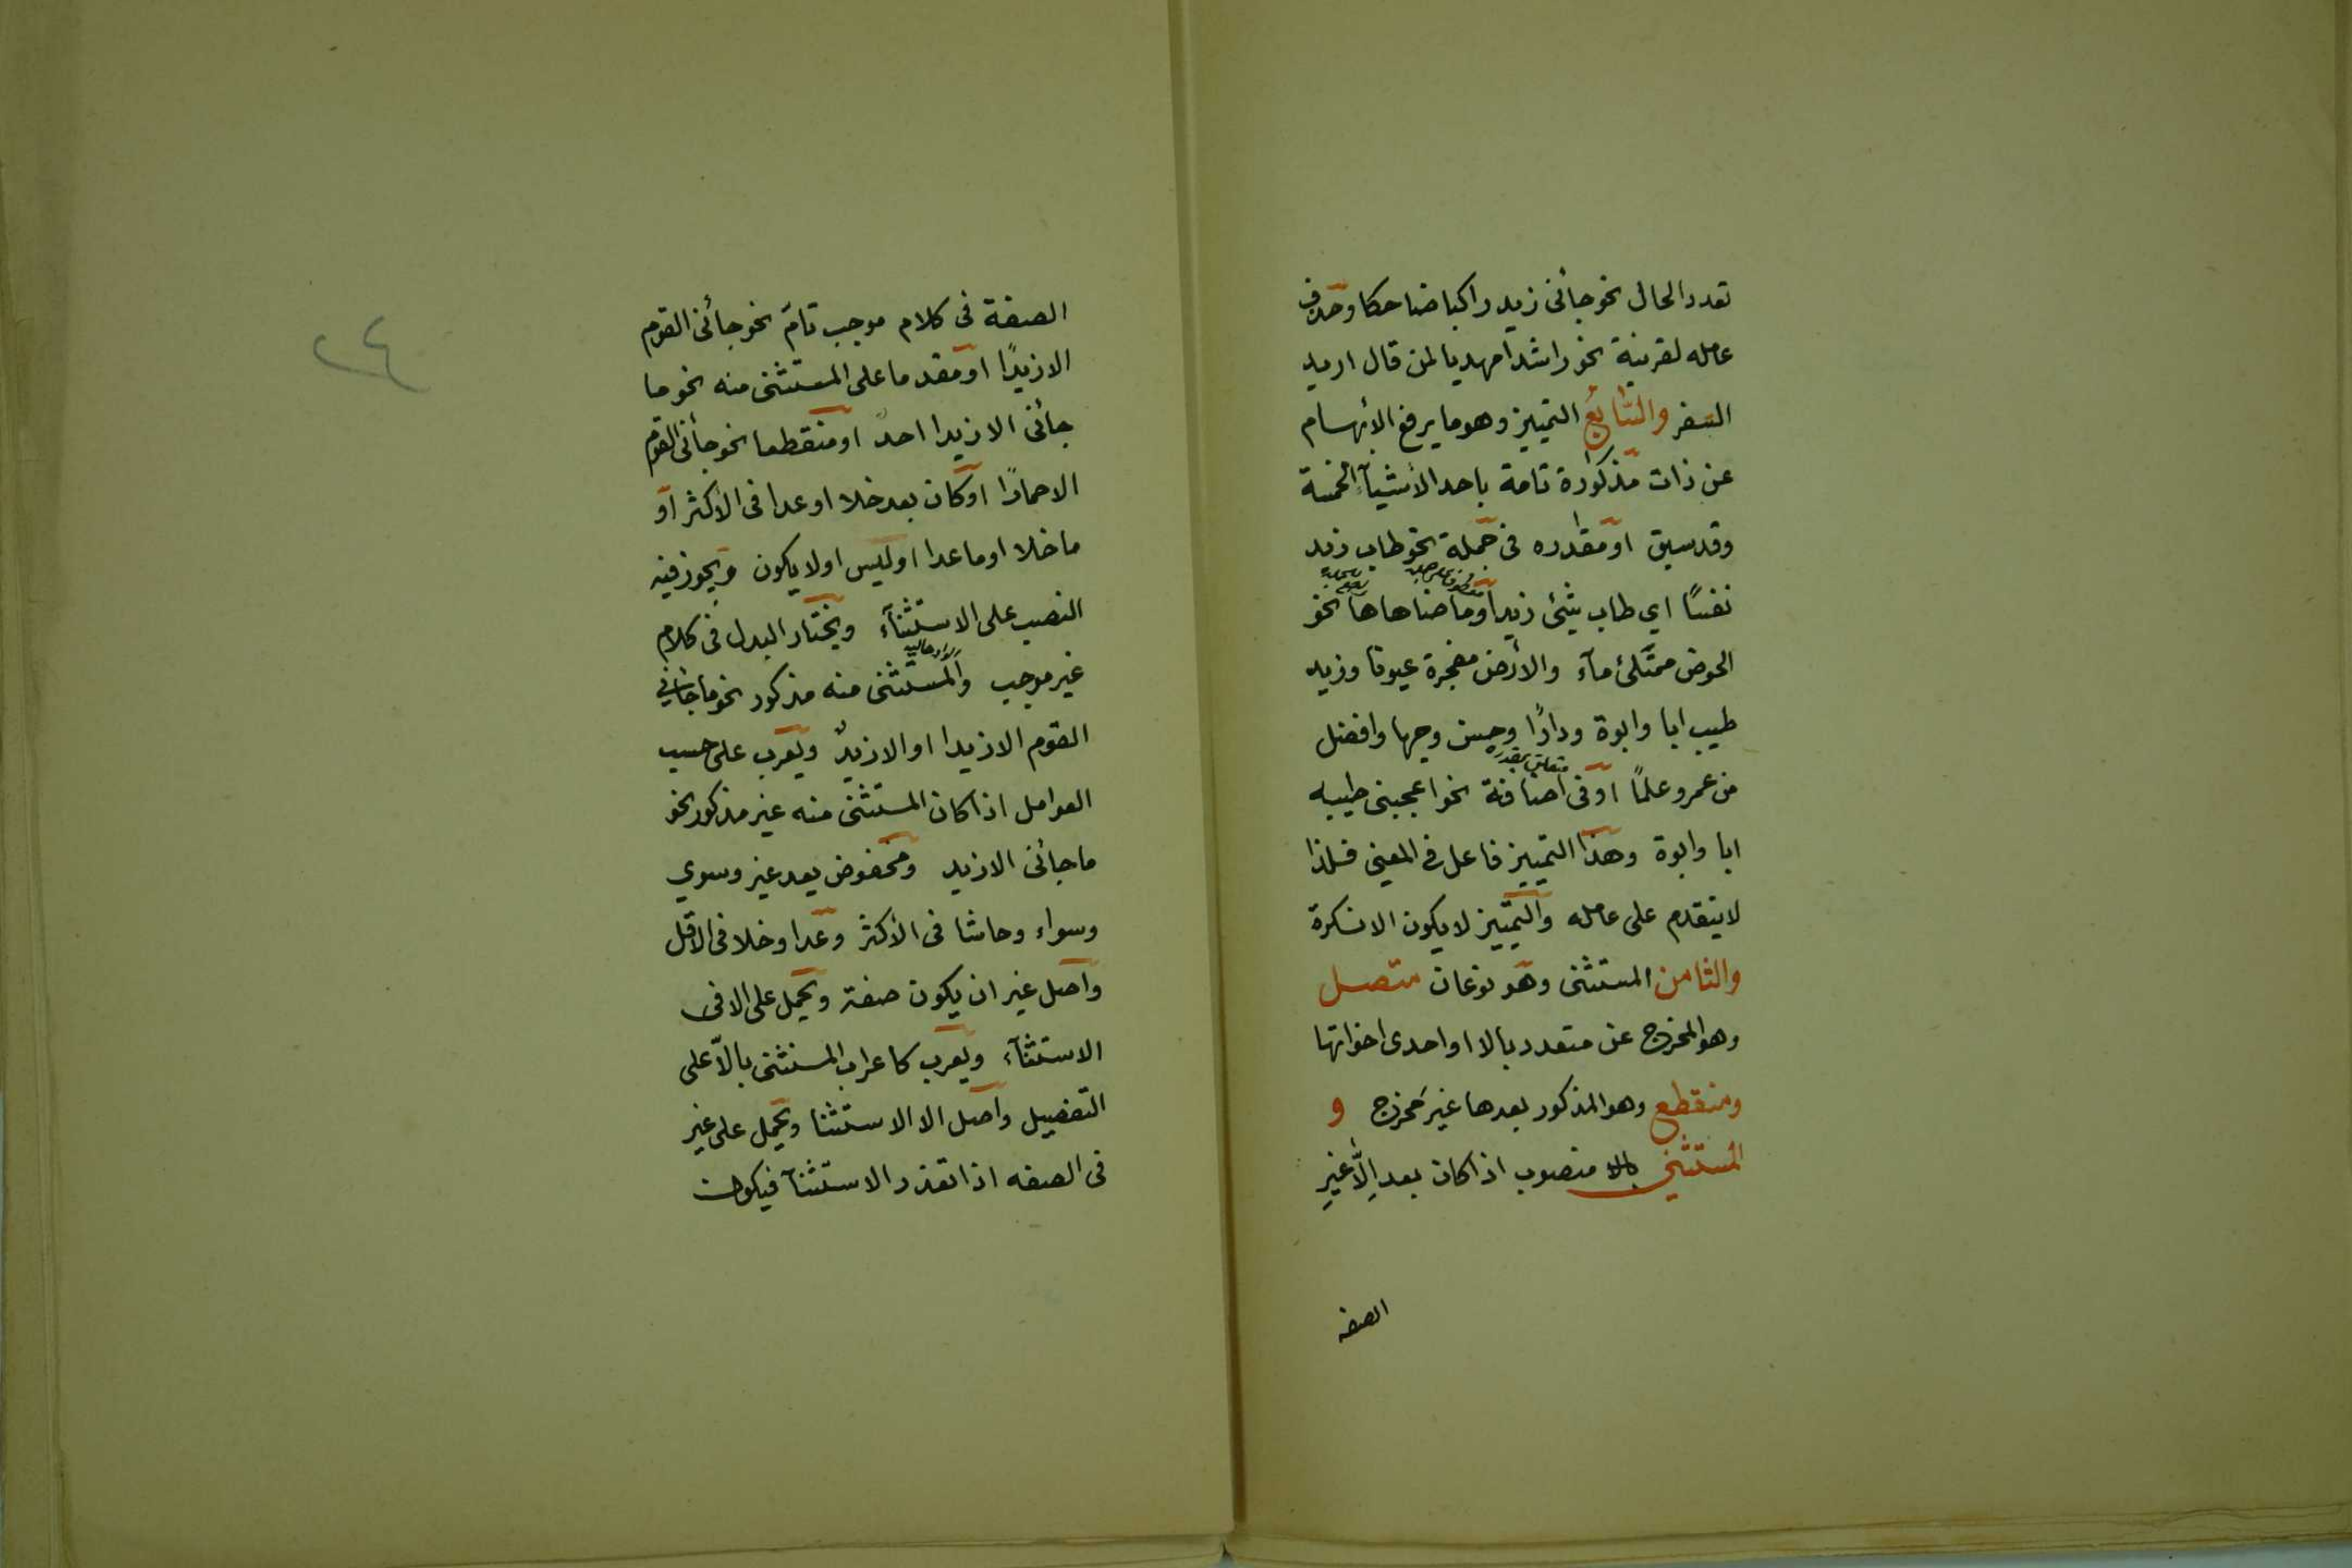 تعدد الحال نحو جائنى زيد راكبا ضاحكا وحذف
عامله لقرينة نحو راشدا مهديا لمن قال اريد
السفر والسّابع التمييز وهو ما يرفع الأبهام
عن ذات مذكورة تامة باحد الأشيآء الخمسة
وقد سبق او مقدره فى جملة نحو طاب زيد
نفسًا اي طاب شئ زيد او ما ضاهاها نحو
الحوض ممتلئ مآء والأرض مفجرة عيونا وزيد
طيب ابا وابوة ودارًا وحسن وجها وافضل
متعلق بمقدره
من عمرو علمًا او فى اضافة نحو اعجبنى طيبه
ابا وابوة وهذا التمييز فاعل فى المعنى فلذا
لا يتقدم على عامله والتمييز لا يكون الا نكرة
والثامن المستثنى وهو نوعان متصل
وهو المخرج عن متعدد بالا او احدى اخواتها
ومنقطع وهو المذكور بعدها غيرَ مخرج و
المستثنى بالا منصوب اذا كان بعد اِلّا غيرِ
الصفه
٢٤
الصفة فى كلام موجب تامّ نحو جائنى القوم
الا زيدًا او مقدما على المستثنى منه نحو ما
جائنى الا زيدا احدٌ او منقطعا نحو جائنى القوم
الا حمارًا او كان بعد خلا او عدا فى الأكثر او
ما خلا او ما عدا او ليس او لا يكون ويجوز فيه
النصب على الاستثنآء ويختار البدل فى كلام
غير موجب والمستثنى منه مذكور نحو ما جائنى
القوم الا زيدا او الا زيدٌ ويعرب على حسب
العوامل اذا كان المستثنى منه غير مذكور نحو
ما جائنى الا زيد ومخفوض بعد غير وسوي
وسواء وحاشا فى الأكثر وعدا وخلا فى الاقل
واصل غير ان يكون صفة ويحمل على الا فى
الاستثنآء ويعرب كاعراب المستثنى بالّا على
التفصيل واصل الا الاستثنا ويحمل على غير
فى الصفه اذا تعذر الاستثنآ فيكون